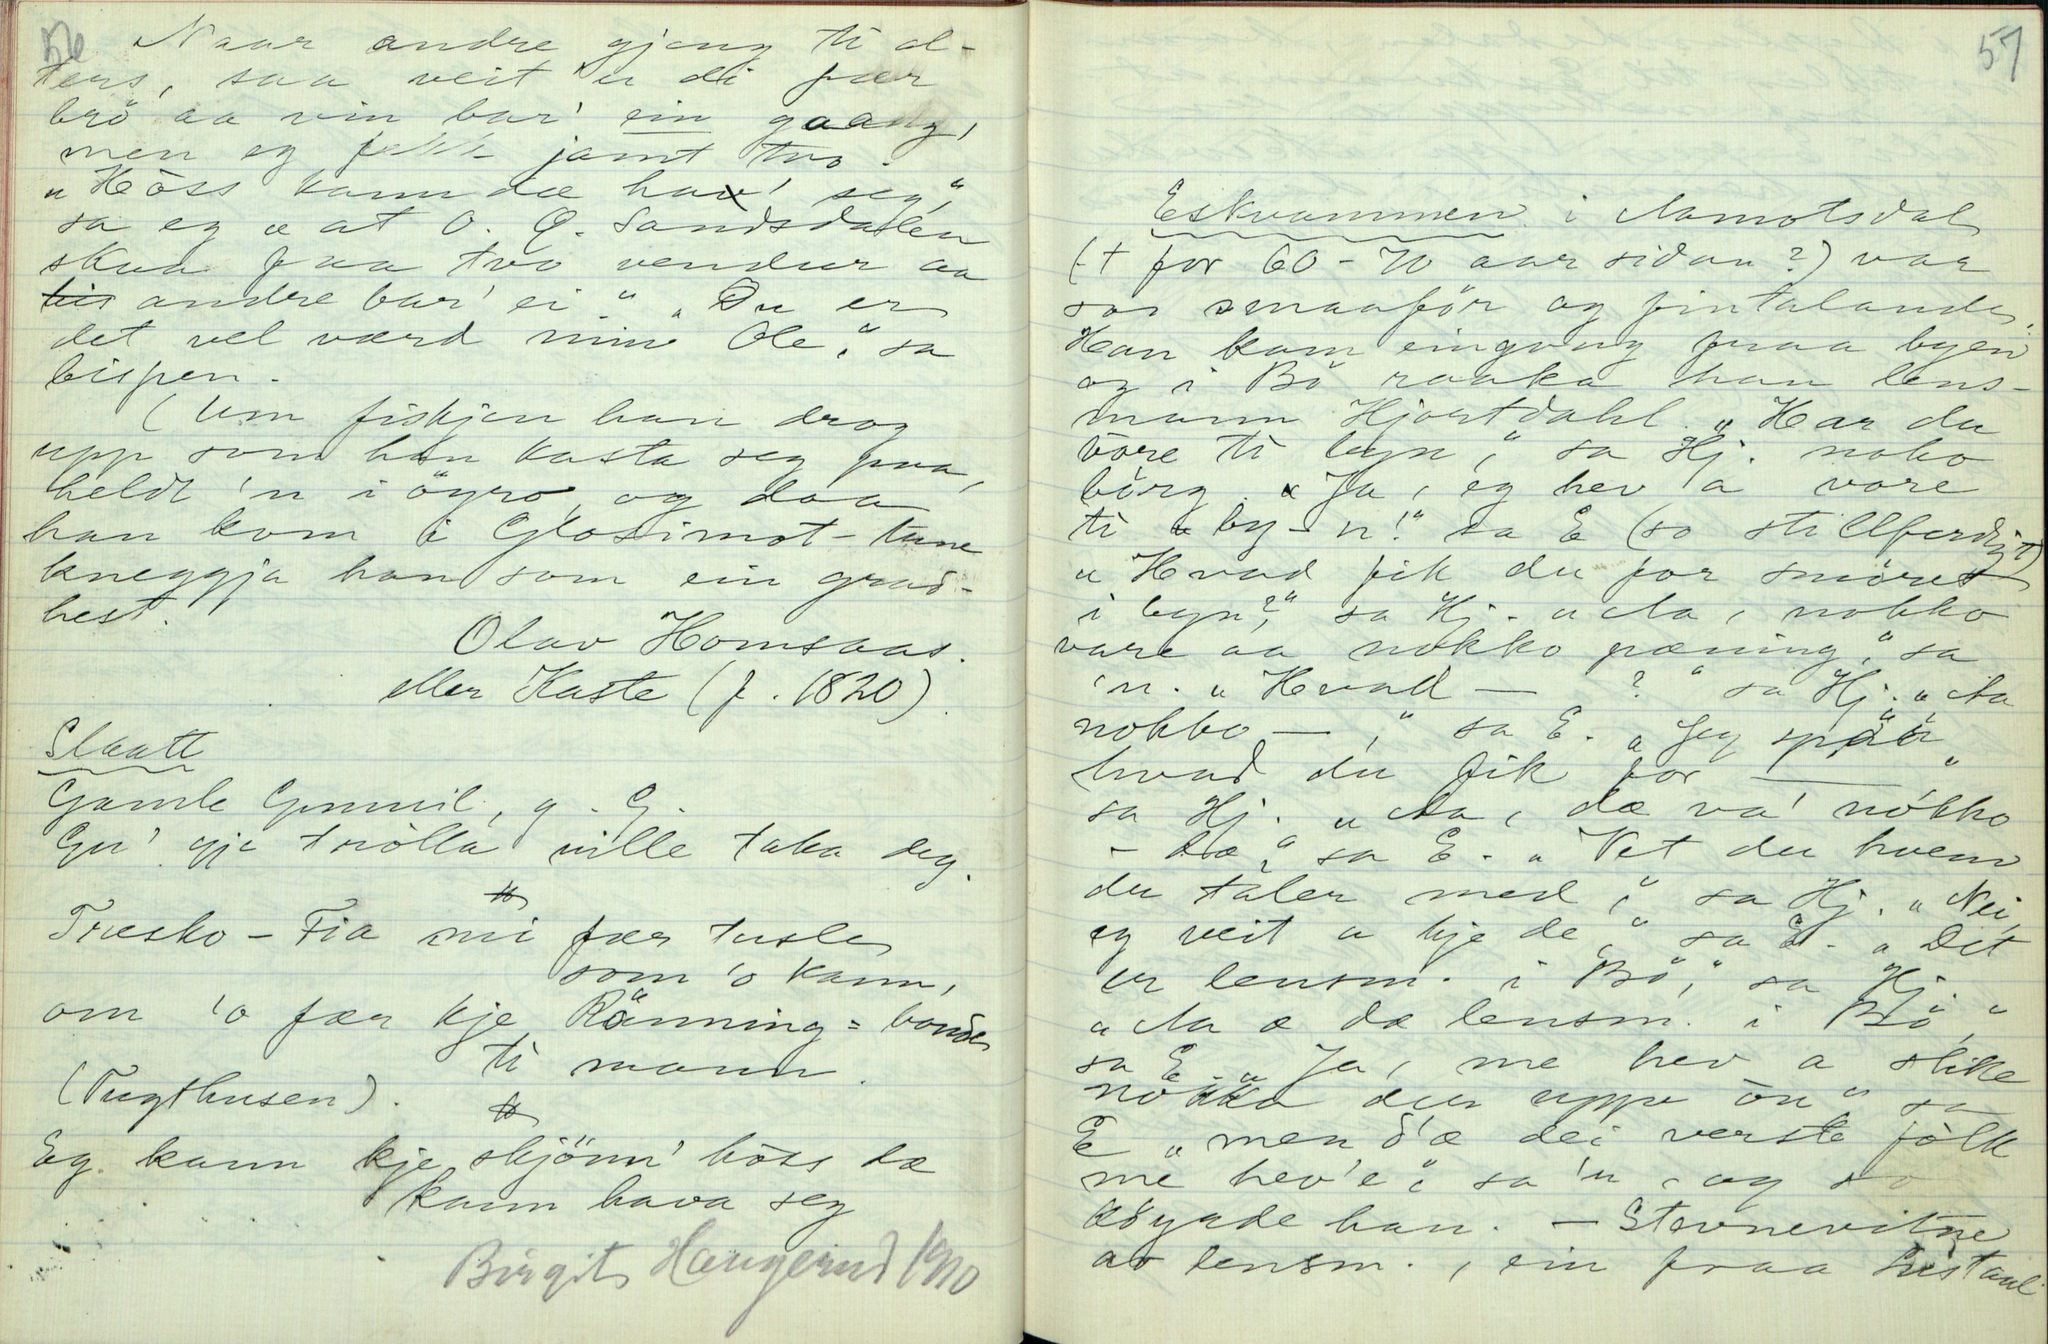 56
Naar andre gjeng ti al-
ters, saa veit 'u di fær
brö aa vin bar' ein gaang,
men eg fekk jamt tvo.
„Hòss kann dæ hav' seg,"
sa eg „at O. O. Sandsdalen
skua faa tvo vendur aa
andre bar' ei". „Du er
det vel værd min Ole," sa
bispen.
(Um fiskjen han drog
upp som han kasta seg paa,
heldt 'n i ögro, og daa
han kom i Glosimot-tune
kneggja han som ein grad-
hest.
Olav Homsaas.
eller Kaste (f. 1820).
Slaatt
Gamle Gunnil, g. G.
Gu' gje trölla ville taka deg.
Træsko-Fia mi fær tusle
som 'o kann,
om 'o fær kje Rönning = bonde
ti mann.
(Tugthusen).
Eg kann kje skjönn' hòss dæ
kann hava seg
Birgit Haugerud 1910
57
Eskvammen i Aamotsdal
(+ for 60-70 aar sidan?) var
so smaaför og fintalande.
Han kom eingong fraa byen
og i Bö raaka han lens-
mann Hjortdahl. „Har du
vöre ti byn," sa Hj. noko
börg. „Ja, eg hev a vore
ti by-n!" sa E (so stillferdigt)
„Hvad fik du for smöret
i byn?," sa Hj. „Aa, nokko
vare aa nokko pæning," sa
'n. „Hvad — ?" sa Hj. „Aa
nokko —," sa E. „Jeg spör"
hvad du fik for —"
sa Hj. „Aa, dæ va' nokko
- dæ," sa E. „Vet du hvem
du taler med," sa Hj. „Nei,
eg veit a kje de," sa E. „Det
er lensm. i Bö," sa Hj.
„Aa æ dæ lensm. i Bö,"
sa E. „Ja, me hev a slike
nokka der uppe òu" sa
E „men d'æ dei verste fölk
me hev'e," sa 'n, og so
köyrde han. — Stevnevitne
av lensm., ein fraa